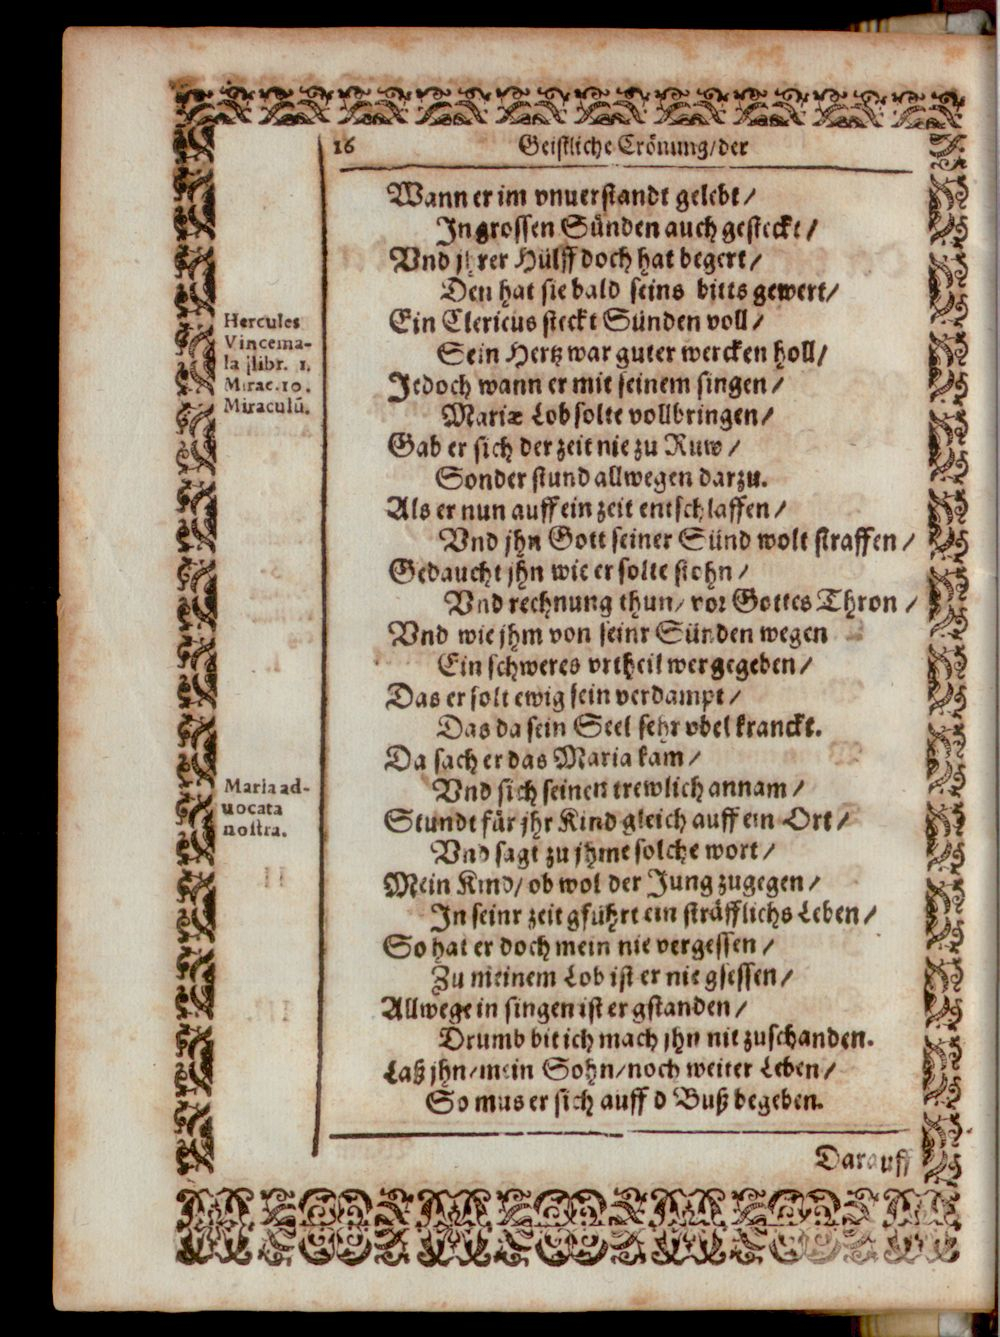 16 Geistliche Crönung/der
Wann er im vnuerstandt gelebt/
In grossen Sünden auch gesteckt/
Vnd jhrer Hülff doch hat begert/
Den hat sie bald seins bitts gewert/
Hercules
Vincema-
la libr. 1.
Mirac. 10.
Miraculū.
Ein Clericus steckt Sünden voll/
Sein Hertz war guter wercken holl/
Jedoch wann er mit seinem singen/
Mariæ Lob solte vollbringen/
Gab er sich der zeit nie zu Ruw/
Sonder stund allwegen darzu.
Als er nun auff ein zeit entschlaffen/
Vnd jhn Gott seiner Sünd wolt straffen/
Gedaucht jhn wie er solte stohn/
Vnd rechnung thun/ vor Gottes Thron/
Vnd wie jhm von seinr Sünden wegen
Ein schweres vrtheil wer gegeben/
Das er solt ewig sein verdampt/
Das da sein Seel sehr vbel kranckt.
Da sach er das Maria kam/
Maria ad-
uocata
nostra.
Vnd sich seinen trewlich annam/
Stundt für jhr Kind gleich auff ein Ort/
Vnd sagt zu jhme solche wort/
Mein Kind/ ob wol der Jung zugegen/
In seinr zeit gführt ein sträfflichs Leben/
So hat er doch mein nie vergessen/
Zu meinem Lob ist er nie gsessen/
Allwege in singen ist er gstanden/
Drumb bit ich mach jhn nit zuschanden.
Laß jhn/mein Sohn/noch weiter Leben/
So mus er sich auff d Buß begeben.
Darauff